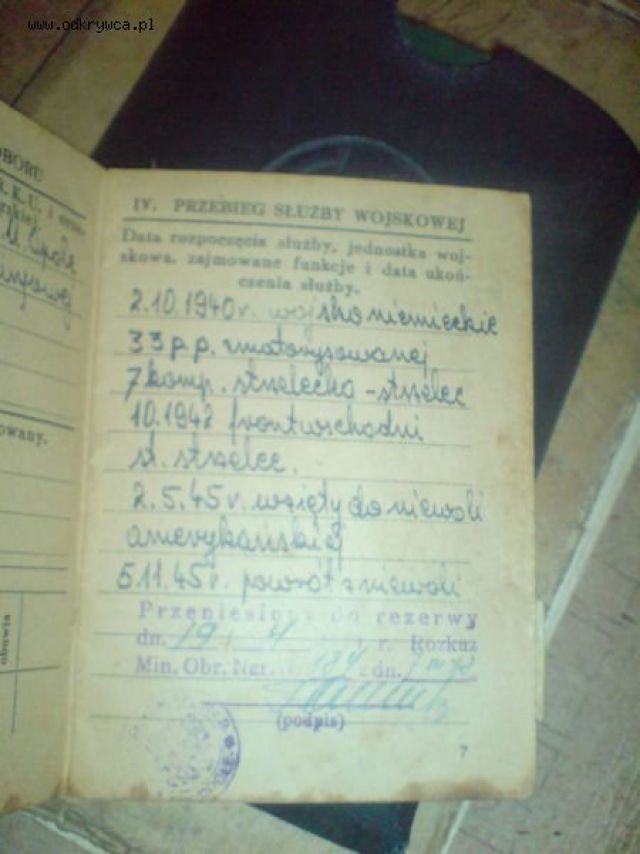 www.odkrywca.pl
OBORU
R.K.U. i
Opole
owany.
obuwia
IV. PRZEBIEG SŁUŻBY WOJSKOWEJ
Data rozpoczęcia służby, jednostka woj-
skowa, zajmowane funkcje i data ukoń-
czenia służby.
2.10.1940r. wojsko niemieckie
33 p.p. zmotoryzowanej
7 komp. strzelecka - strzelec
10.1942 front wschodni
st. strzelec.
2.5.45 r. wzięty do niewoli
amerykańskiej
5.11.45r. powrót z niewoli
Przeniesiony do rezerwy
dn. 19 r. Rozkaz
Min. Obr. Nar. z dn.
(podpis)
7